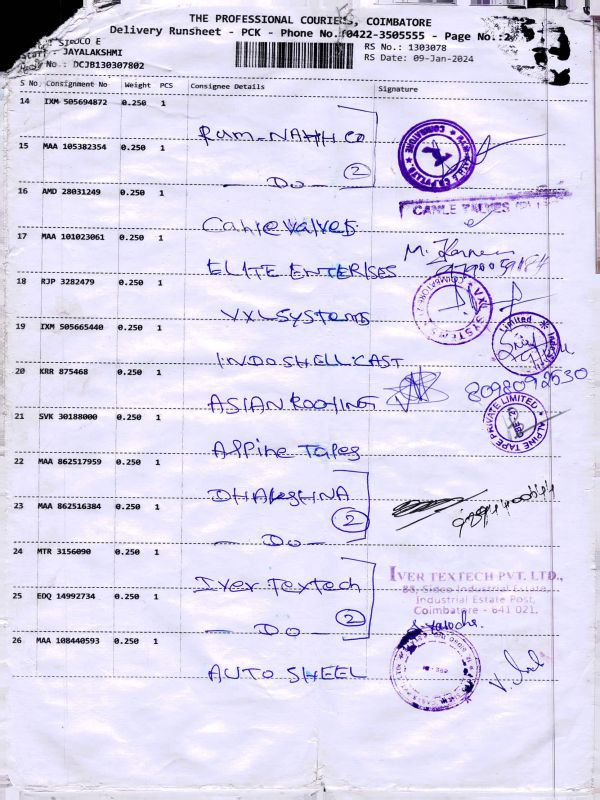 THE PROFESSIONAL COURIERS, COIMBATORE
Delivery Runsheet - PCK - Phone No.:0422-3505555 - Page No.:2
SIDCO E
JAYALAKSHMI
RS No.: 1303078
No.: DCJB130307802
RS Date: 09-Jan-2024
S No. Consignment No Weight PCS Consignee Details Signature
14 IXM 505694872 0.250 1
15 MAA 105382354 0.250 1
Do 2
16 AMD 28031249 0.250 1
CAMLE VALVES
17 MAA 101023061 0.250 1
ELITE ENTERISES
18 RJP 3282479 0.250 1
VXL Systems
19 IXM 505665440 0.250 1
Limited
INDOSHELL CAST
20 KRR 875468 0.250 1
8098092530
ASIAN ROOFING
21 SVK 30188000 0.250 1
ALPINE TAPE PRIVATE LIMITED
Alpine Tapes
22 MAA 862517959 0.250 1
23 MAA 862516384 0.250 1
Do 2
24 MTR 3156090 0.250 1
IVER TEXTECH PVT. LTD.,
Iver Textech
88, Sidco Industrial Estate,
25 EDQ 14992734 0.250 1
Industrial Estate Post,
Coimbatore - 641 021.
Do 2
26 MAA 108440593 0.250 1
AUTO SHEEL